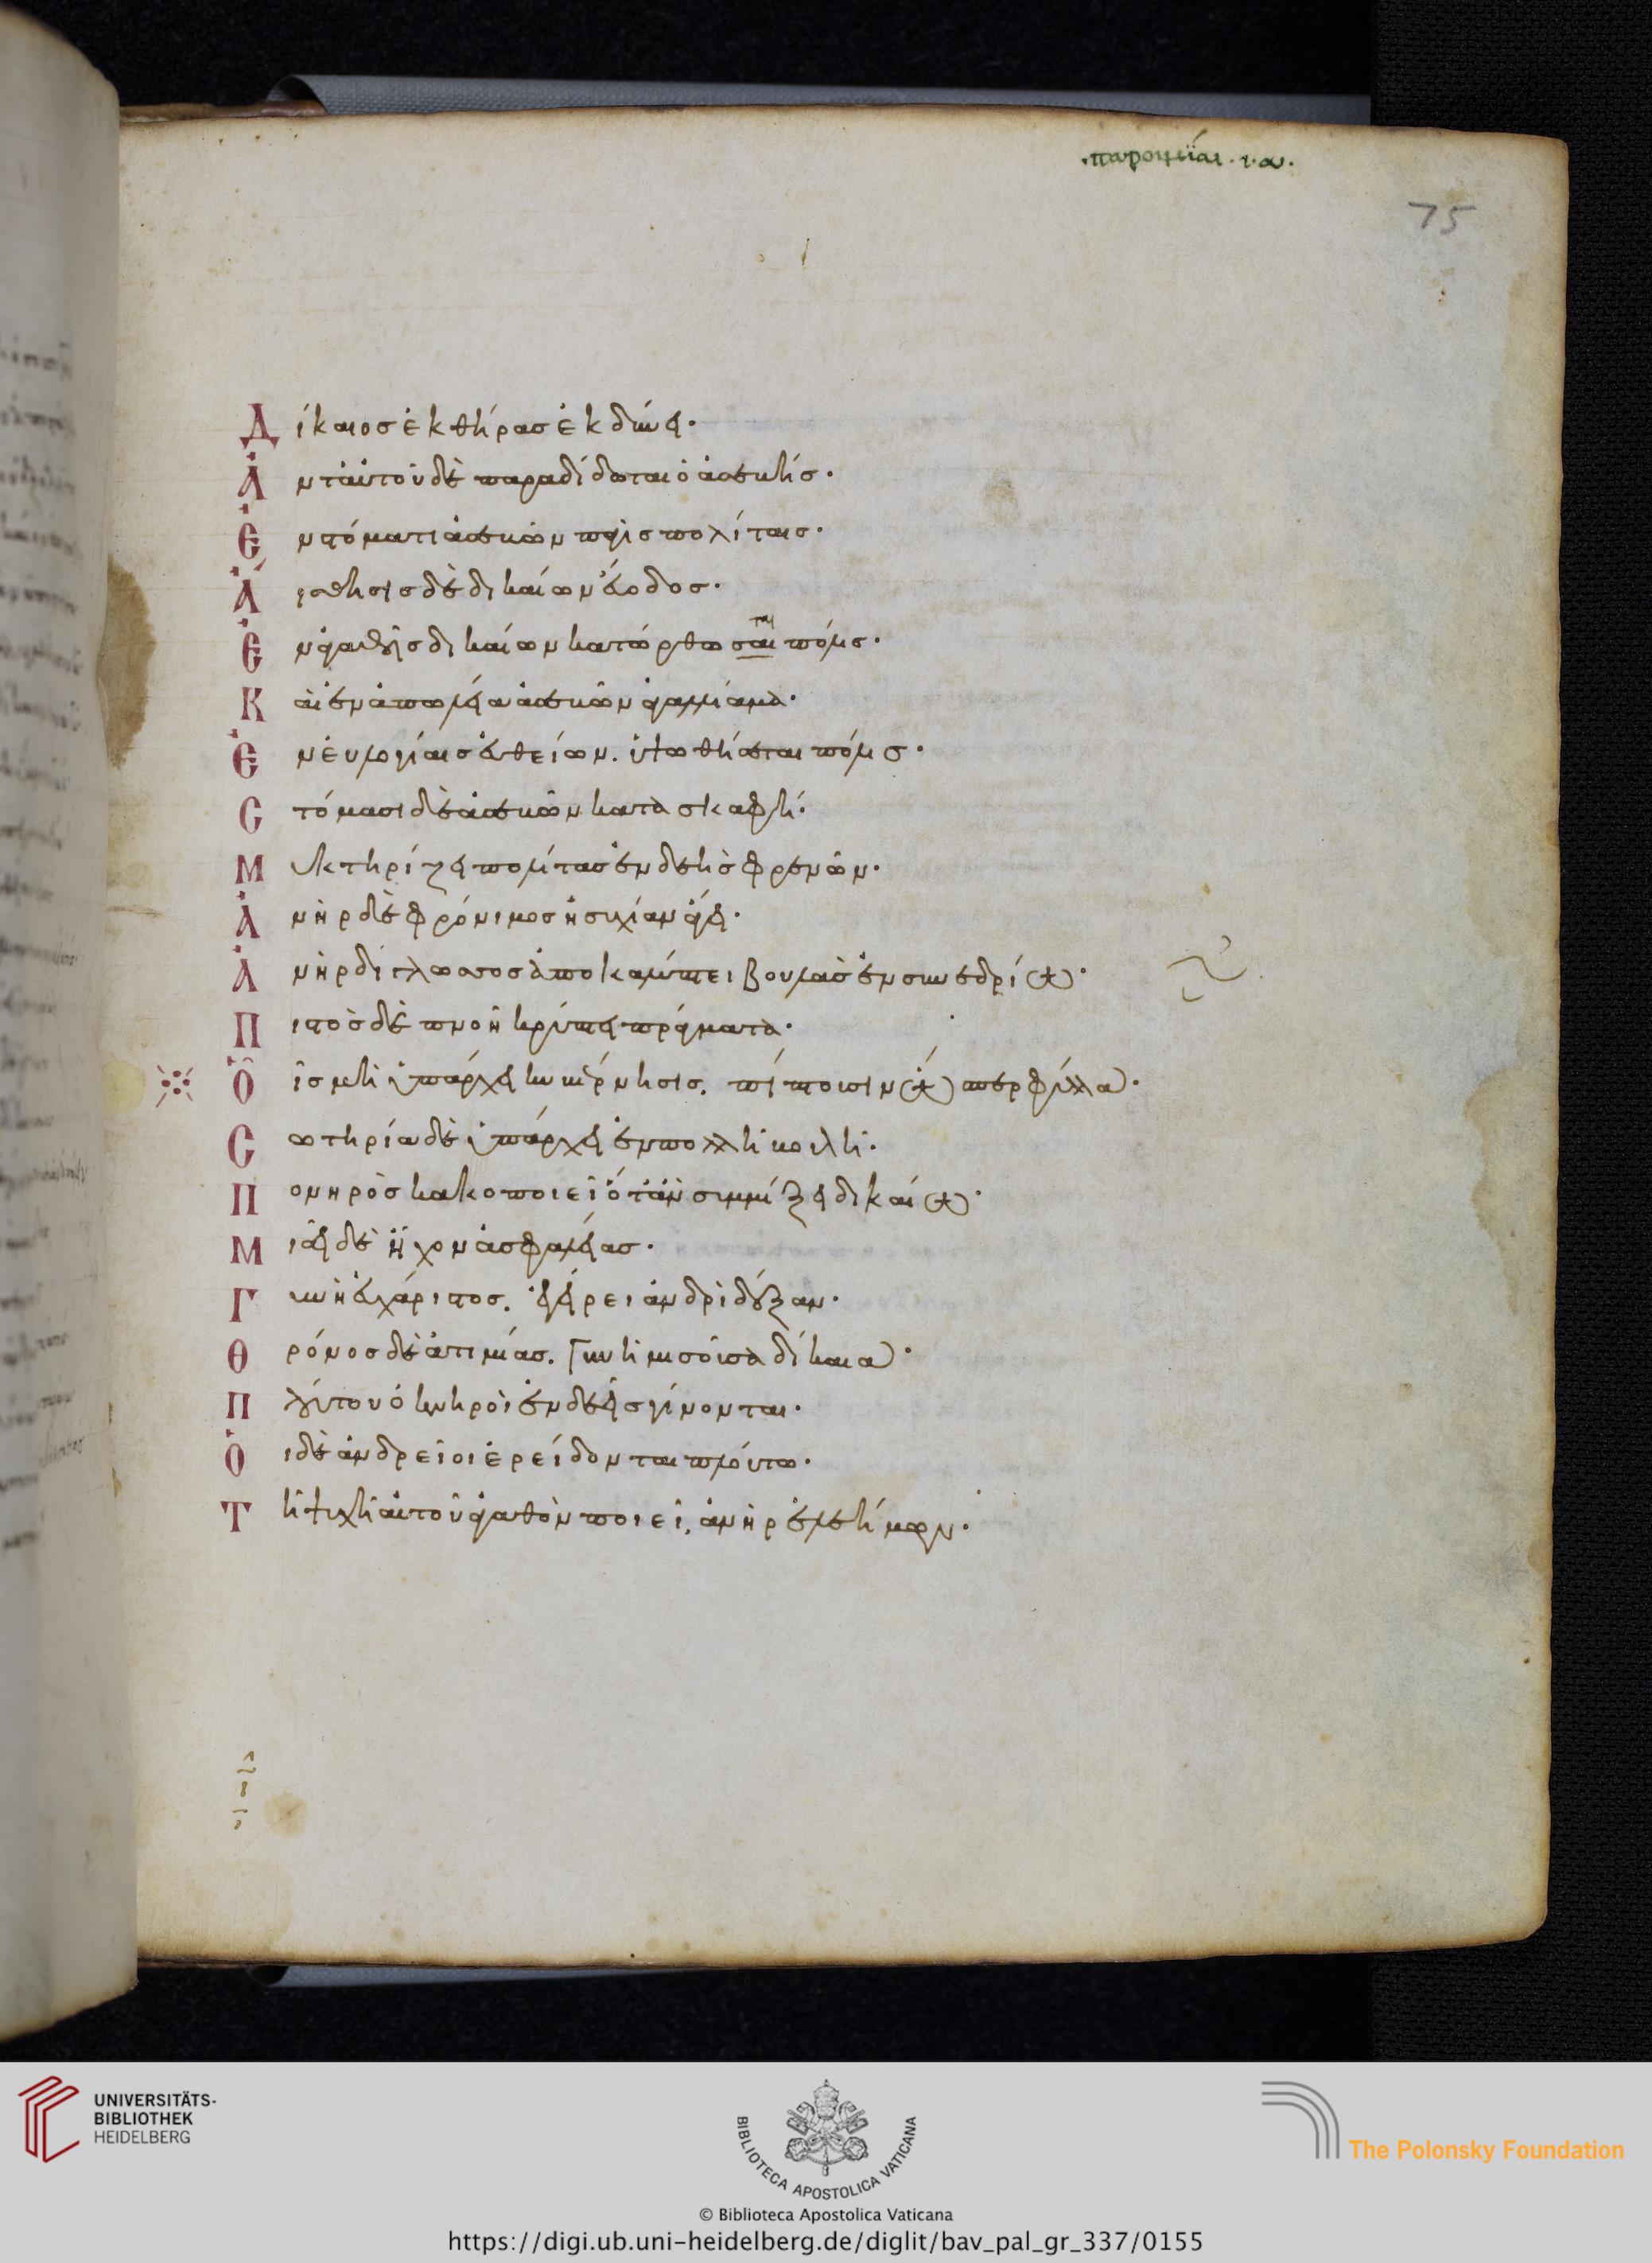 ·παροιμίαι· ια·
75
Δίκαιος ἐκ θήρας ἐκδύνει·
Ἀντ' αὐτοῦ δὲ παραδίδοται ὁ ἀσεβής·
Ἐν στόματι ἀσεβῶν παγὶς πολίταις·
Αἴσθησις δὲ δικαίων εὔοδος·
Ἐν ἀγαθοῖς δικαίων κατώρθωσαι πόλις·
ται
Καὶ ἐν ἀπωλείᾳ ἀσεβῶν ἀγαλλίαμα·
Ἐν εὐλογίαις εὐθείων. ὑψωθήσεται πόλις·
Στόμασι δὲ ἀσεβῶν κατασκαφή·
Μυκτηρίζει πολίτας ἐνδεὴς φρενῶν·
Ἀνὴρ δὲ φρόνιμος ἡσυχίαν ἄγει·
Ἀνὴρ δίγλωσσος ἀποκαλύπτει βουλὰς ἐν συνεδρίῳ·
Πιστὸς δὲ πνοῇ κρύπτει πράγματα·
Οἷς μὴ ὑπάρχει κυβέρνησις. πίπτουσιν ὥσπερ φύλλα·
Σωτηρία δὲ ὑπάρχει ἐν πολλῇ βουλῇ·
Πονηρὸς κακοποιεῖ ὅταν συμμίξῃ δικαίῳ·
Μισεῖ δὲ ἦχον ἀσφαλείας·
Γυνὴ εὐχάριστος. ἐγείρει ἀνδρὶ δόξαν·
Θρόνος δὲ ἀτιμίας. γυνὴ μισοῦσα δίκαια·
Πλούτου ὀκνηροὶ ἐνδεεῖς γίνονται·
Οἱ δὲ ἀνδρεῖοι ἐρείδονται πλούτω·
Τῇ ψυχῇ αὐτοῦ ἀγαθὸν ποιεῖ, ἀνὴρ ἐλεήμων·
UNIVERSITÄTS-
BIBLIOTHEK
HEIDELBERG
BIBLIOTECA APOSTOLICA VATICANA
The Polonsky Foundation
© Biblioteca Apostolica Vaticana
https://digi.ub.uni-heidelberg.de/diglit/bav_pal_gr_337/0155